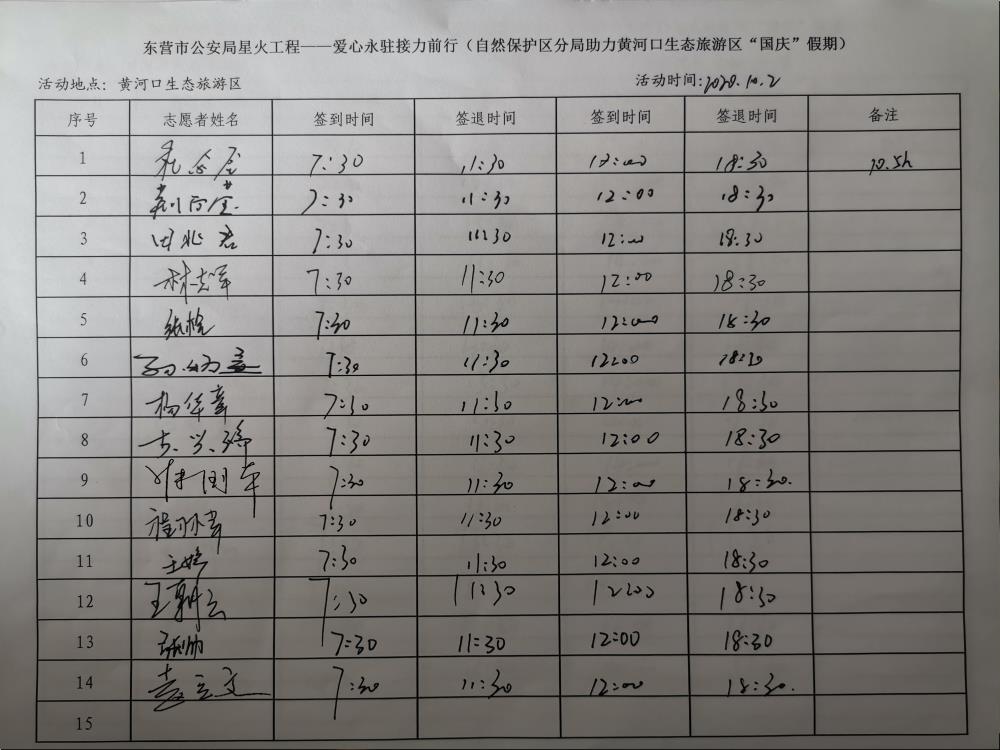 东营市公安局星火工程——爱心永驻接力前行（自然保护区分局助力黄河口生态旅游区“国庆”假期）
活动地点：黄河口生态旅游区 活动时间:2020.10.2
序号 志愿者姓名 签到时间 签退时间 签到时间 签退时间 备注
1 7:30 11:30 12:00 18:30 10.5h
2 7:30 11:30 12:00 18:30
3 田兆君 7:30 11:30 12:00 18:30
4 林志军 7:30 11:30 12:00 18:30
5 7:30 11:30 12:00 18:30
6 7:30 11:30 12:00 18:30
7 杨华章 7:30 11:30 12:00 18:30
8 7:30 11:30 12:00 18:30
9 7:30 11:30 12:00 18:30.
10 7:30 11:30 12:00 18:30
11 7:30 11:30 12:00 18:30
12 7:30 11:30 12:00 18:30
13 7:30 11:30 12:00 18:30
14 7:30 11:30 12:00 18:30.
15